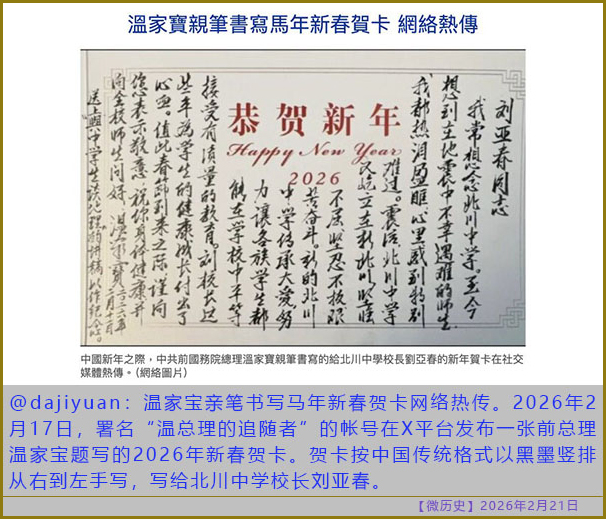 溫家寶親筆書寫馬年新春賀卡 網絡熱傳
恭贺新年
Happy New Year
2026
刘亚春同志
我常想念北川中学。至今
想到在地震中不幸遇难的师生
我都热泪盈眶,心里感到特别
难过。震后北川中学
又屹立在新北川,坚强
不屈,坚忍不拔,艰
苦奋斗。新的北川
中学传承大爱,努
力让各族学生都
能在学校中平等
接受有质量的教育。刘校长这
些年为学生的健康成长付出了
心血。值此春节到来之际,谨向
您表示敬意,祝你身体健康并
向全校师生问好。温家宝 二〇二六年
二月十日
送上 中学生谈 的讲稿以作纪念。
中國新年之際,中共前國務院總理溫家寶親筆書寫的給北川中學校長劉亞春的新年賀卡在社交
媒體熱傳。(網絡圖片)
@dajiyuan:温家宝亲笔书写马年新春贺卡网络热传。2026年2
月17日,署名“温总理的追随者”的帐号在X平台发布一张前总理
温家宝题写的2026年新春贺卡。贺卡按中国传统格式以黑墨竖排
从右到左手写,写给北川中学校长刘亚春。
【微历史】2026年2月21日